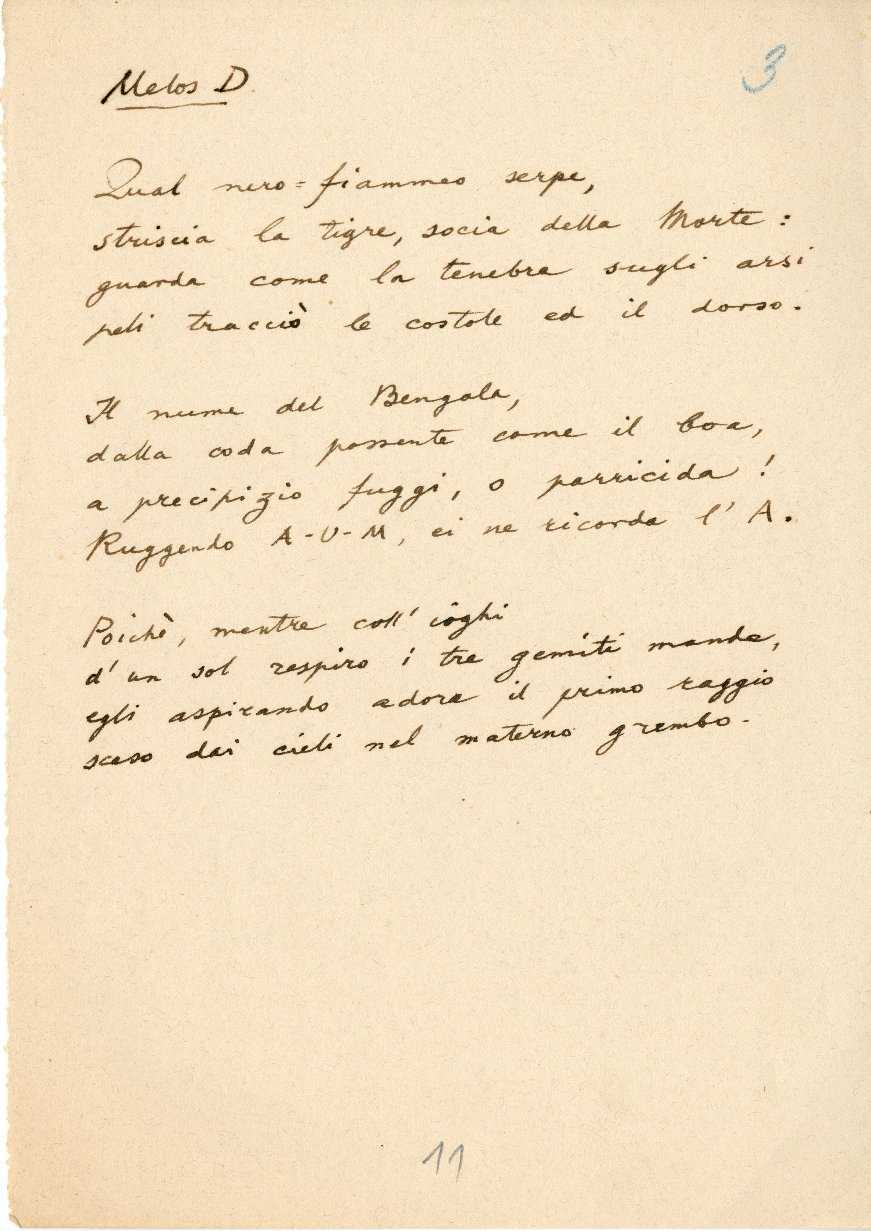 Melos D.
3
Qual nero=fiammeo serpe,
striscia la tigre, socia della Morte:
guarda come la tenebra sugli arsi
peli tracciò le costole ed il dorso.
Il nume del Bengala,
dalla coda possente come il boa,
a precipizio fuggi, o parricida!
Ruggendo A-U-M, ei ne ricorda l'A.
Poichè, mentre coll' iòghi
d'un sol respiro i tre gemiti manda,
egli aspirando adora il primo raggio
sceso dai cieli nel materno grembo.
11